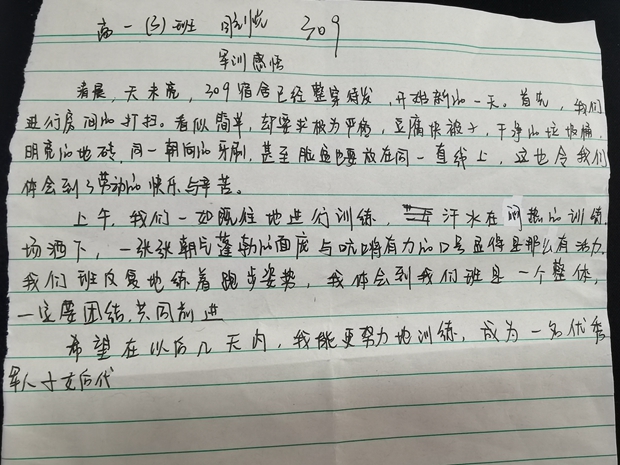 高一(3)班 309
军训感悟
清晨，天未亮，309宿舍已经整穿待发，开始新的一天。首先，我们
进行房间的打扫。看似简单，却要求极为严格，豆腐块被子，干净的垃圾桶，
明亮的地砖，同一朝向的牙刷，甚至脸盆也要放在同一直线上，这也令我们
体会到了劳动的快乐与辛苦。
上午，我们一如既往地进行训练，汗水在闷热的训练
场洒下，一张张朝气蓬勃的面庞与吭哨有力的口号显得是那么有活力。
我们班反复地练着跑步姿势，我体会到我们班是一个整体，
一定要团结，共同前进
希望在以后几天内，我能更努力地训练，成为一名优秀
军人后代